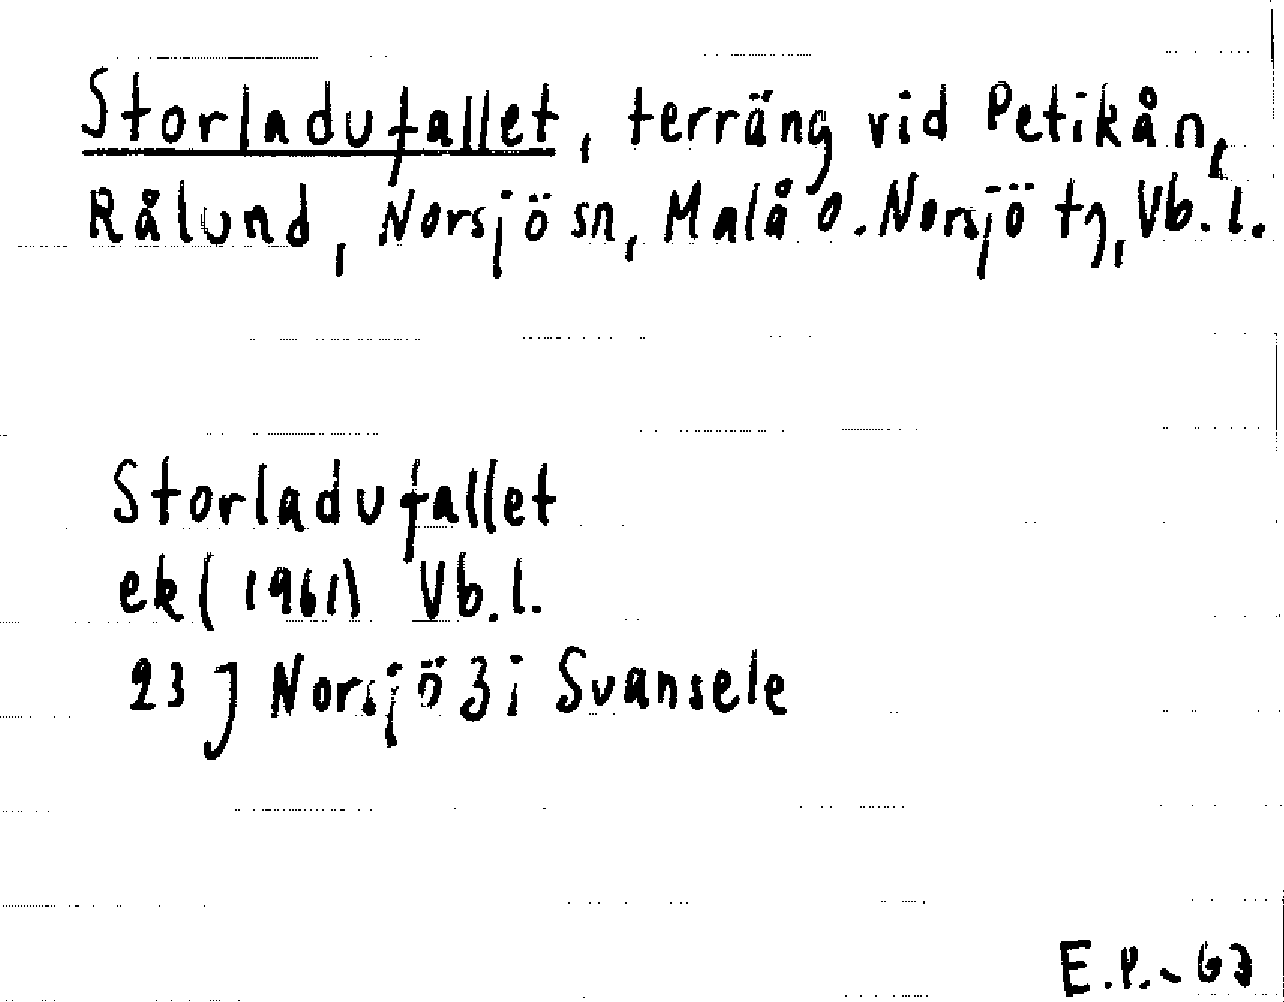 Storladufallet, terräng vid Petikån,
Rålund, Norsjö sn, Malå o. Norsjö tg, Vb. l.
Storladufallet
ek (1961) Vb. l.
23 J Norsjö 3 i Svansele
E.P. - 63